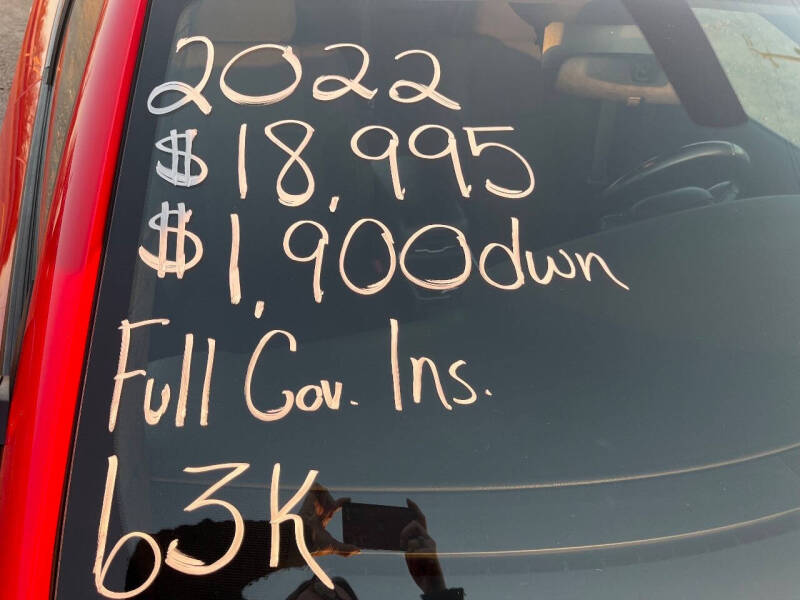 2022
$18,995
$1,900dwn
Full Cov. Ins.
63K